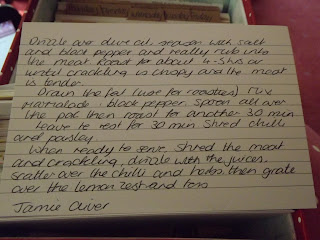 Drizzle over olive oil, season with salt
and black pepper and really rub into
the meat. Roast for about 4-5hrs or
until crackling is crispy and the meat
is tender.
Drain the fat (use for roasties). Mix
marmalade + black pepper. Spoon all over
the pork then roast for another 30 min
Leave to rest for 30 min. Shred chilli
and parsley
When ready to serve, shred the meat
and crackling, drizzle with the juices,
scatter over the chilli and herbs then grate
over the lemon zest and toss
Jamie Oliver